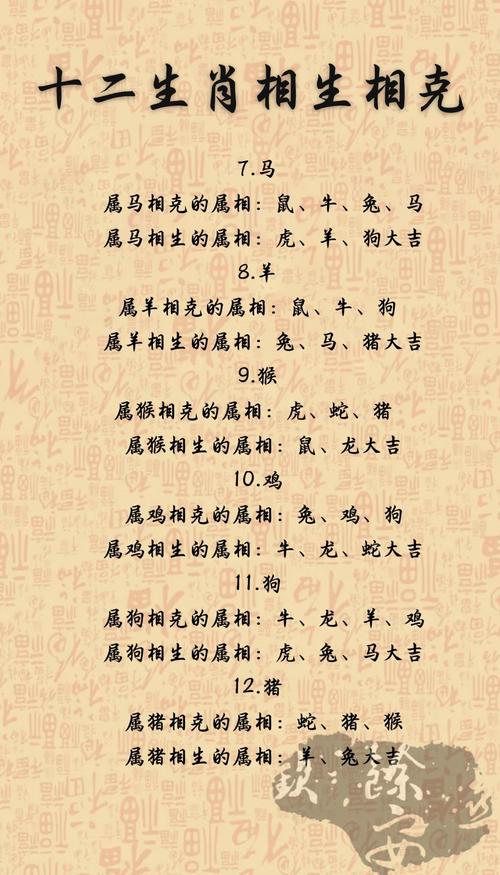 十二生肖相生相克
7.马
属马相克的属相：鼠、牛、兔、马
属马相生的属相：虎、羊、狗大吉
8.羊
属羊相克的属相：鼠、牛、狗
属羊相生的属相：兔、马、猪大吉
9.猴
属猴相克的属相：虎、蛇、猪
属猴相生的属相：鼠、龙大吉
10.鸡
属鸡相克的属相：兔、鸡、狗
属鸡相生的属相：牛、龙、蛇大吉
11.狗
属狗相克的属相：牛、龙、羊、鸡
属狗相生的属相：虎、兔、马大吉
12.猪
属猪相克的属相：蛇、猪、猴
属猪相生的属相：羊、兔大吉